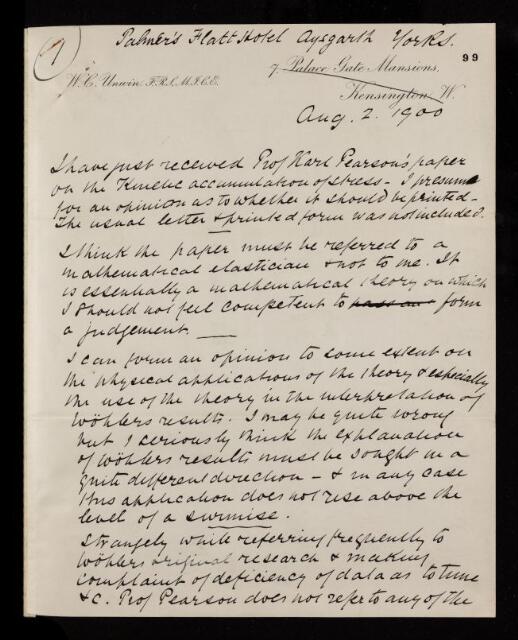 1
Palmer's Flatt Hotel Aysgarth Yorks.
99
7, Palace Gate Mansions,
W. C. Unwin, F.R.S. M.I.C.E.
Kensington W.
Aug. 2. 1900
I have just received Prof Karl Pearson's paper
on the Kinetic accumulation of stress – I presume
for an opinion as to whether it should be printed –
The usual letter & printed form was not included.
I think the paper must be referred to a
mathematical elastician & not to me. It
is essentially a mathematical theory on which
I should not feel competent to form
a judgement.
I can form an opinion to some extent on
the physical applications of the theory & especially
the use of the theory in the interpretation of
Wöhlers results. I may be quite wrong
but I seriously think the explanation
of Wöhlers results must be sought in a
quite different direction – & in any case
this application does not rise above the
level of a surmise.
Strangely while referring frequently to
Wöhlers original research & making
complaint of deficiency of data as to time
&c. Prof Pearson does not refer to any of the